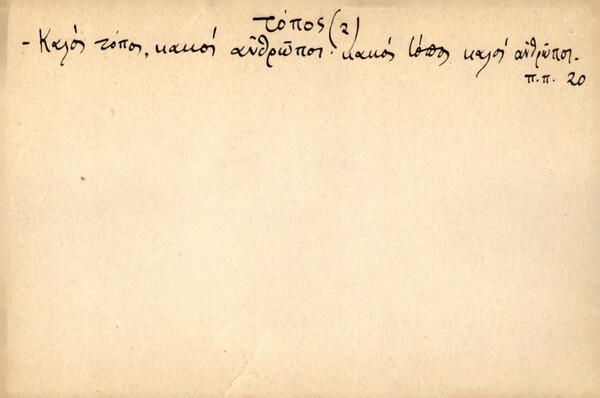 τόπος (2)
- Καλός τόπος, κακοί ἀνθρῶποι· κακός τόπος καλοί ἀνθρῶποι.
π.π. 20